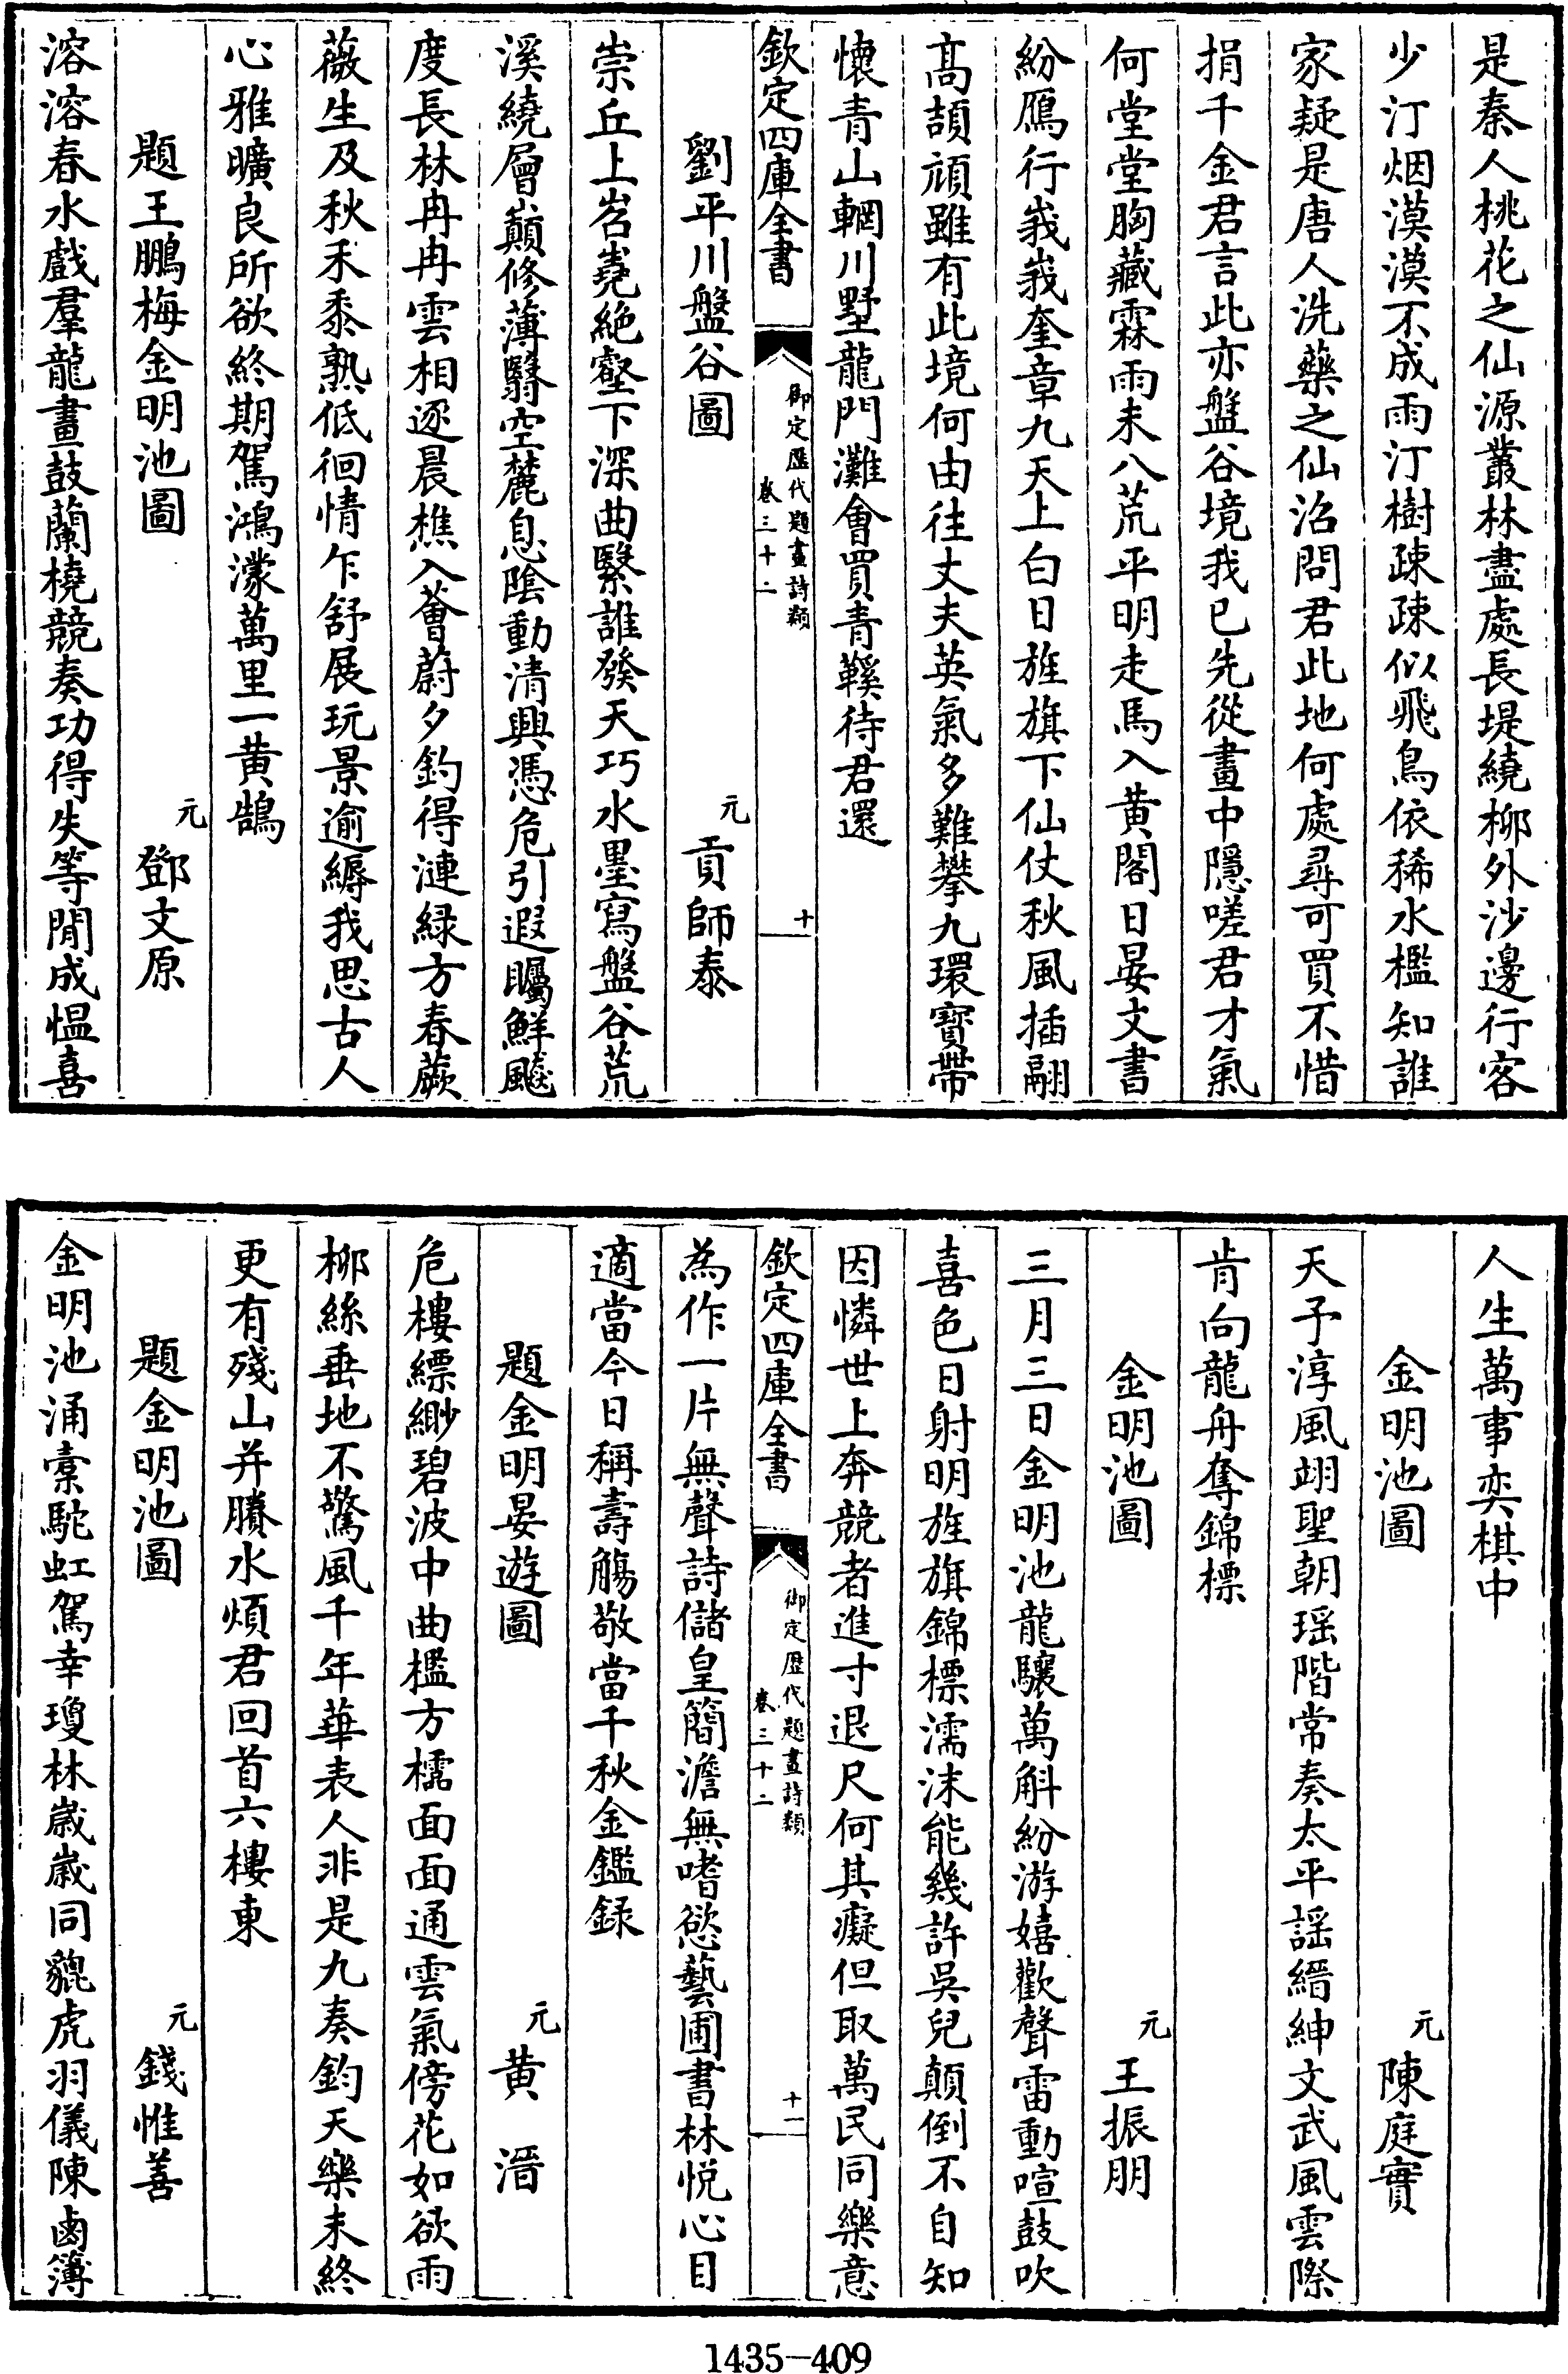 是秦人桃花之仙源叢林盡處長堤繞柳外沙邊行客
少汀烟漠漠不成雨汀樹疎疎似飛鳥依稀水檻知誰
家疑是唐人洗藥之仙沼問君此地何處尋可買不惜
捐千金君言此亦盤谷境我已先從畫中隱嗟君才氣
何堂堂胸藏霖雨未八荒平明走馬入黄閣日晏文書
紛鴈行峩峩奎章九天上白日旌旗下仙仗秋風插翮
髙頡頏雖有此境何由往丈夫英氣多難攀九環寳帶
懷青山輞川墅龍門灘會買青鞵待君還
欽定四庫全書
御定歷代題畫詩類
卷三十二
十
劉平川盤谷圖
元
貢師泰
崇丘上岧嶤絶壑下深曲繄誰發天巧水墨寫盤谷荒
溪繞層巔修薄翳空麓息陰動清興憑危引遐矚鮮飈
度長林冉冉雲相逐晨樵入薈蔚夕釣得漣緑方春蕨
薇生及秋禾黍熟低徊情乍舒展玩景逾縟我思古人
心雅曠良所欲終期駕鴻濛萬里一黄鵠
題王鵬梅金明池圖
元
鄧文原
溶溶春水戲羣龍畫鼓蘭橈競奏功得失等閒成愠喜
人生萬事奕棋中
金明池圖
元
陳庭實
天子淳風翊聖朝瑶階常奏太平謡縉紳文武風雲際
肯向龍舟奪錦標
金明池圖
元
王振朋
三月三日金明池龍驤萬斛紛游嬉歡聲雷動喧鼓吹
喜色日射明旌旗錦標濡沫能幾許吳兒顛倒不自知
因憐世上奔競者進寸退尺何其癡但取萬民同樂意
欽定四庫全書
御定歷代題畫詩類
卷三十二
十一
為作一片無聲詩儲皇簡澹無嗜慾藝圃書林悦心目
適當今日稱壽觴敬當千秋金鑑録
題金明晏遊圖
元
黄溍
危樓縹緲碧波中曲檻方櫺面面通雲氣傍花如欲雨
柳絲垂地不驚風千年華表人非是九奏鈞天樂未終
更有殘山并賸水煩君回首六樓東
題金明池圖
元
錢惟善
金明池涌橐駝虹駕幸瓊林嵗嵗同貔虎羽儀陳鹵簿
1435-409